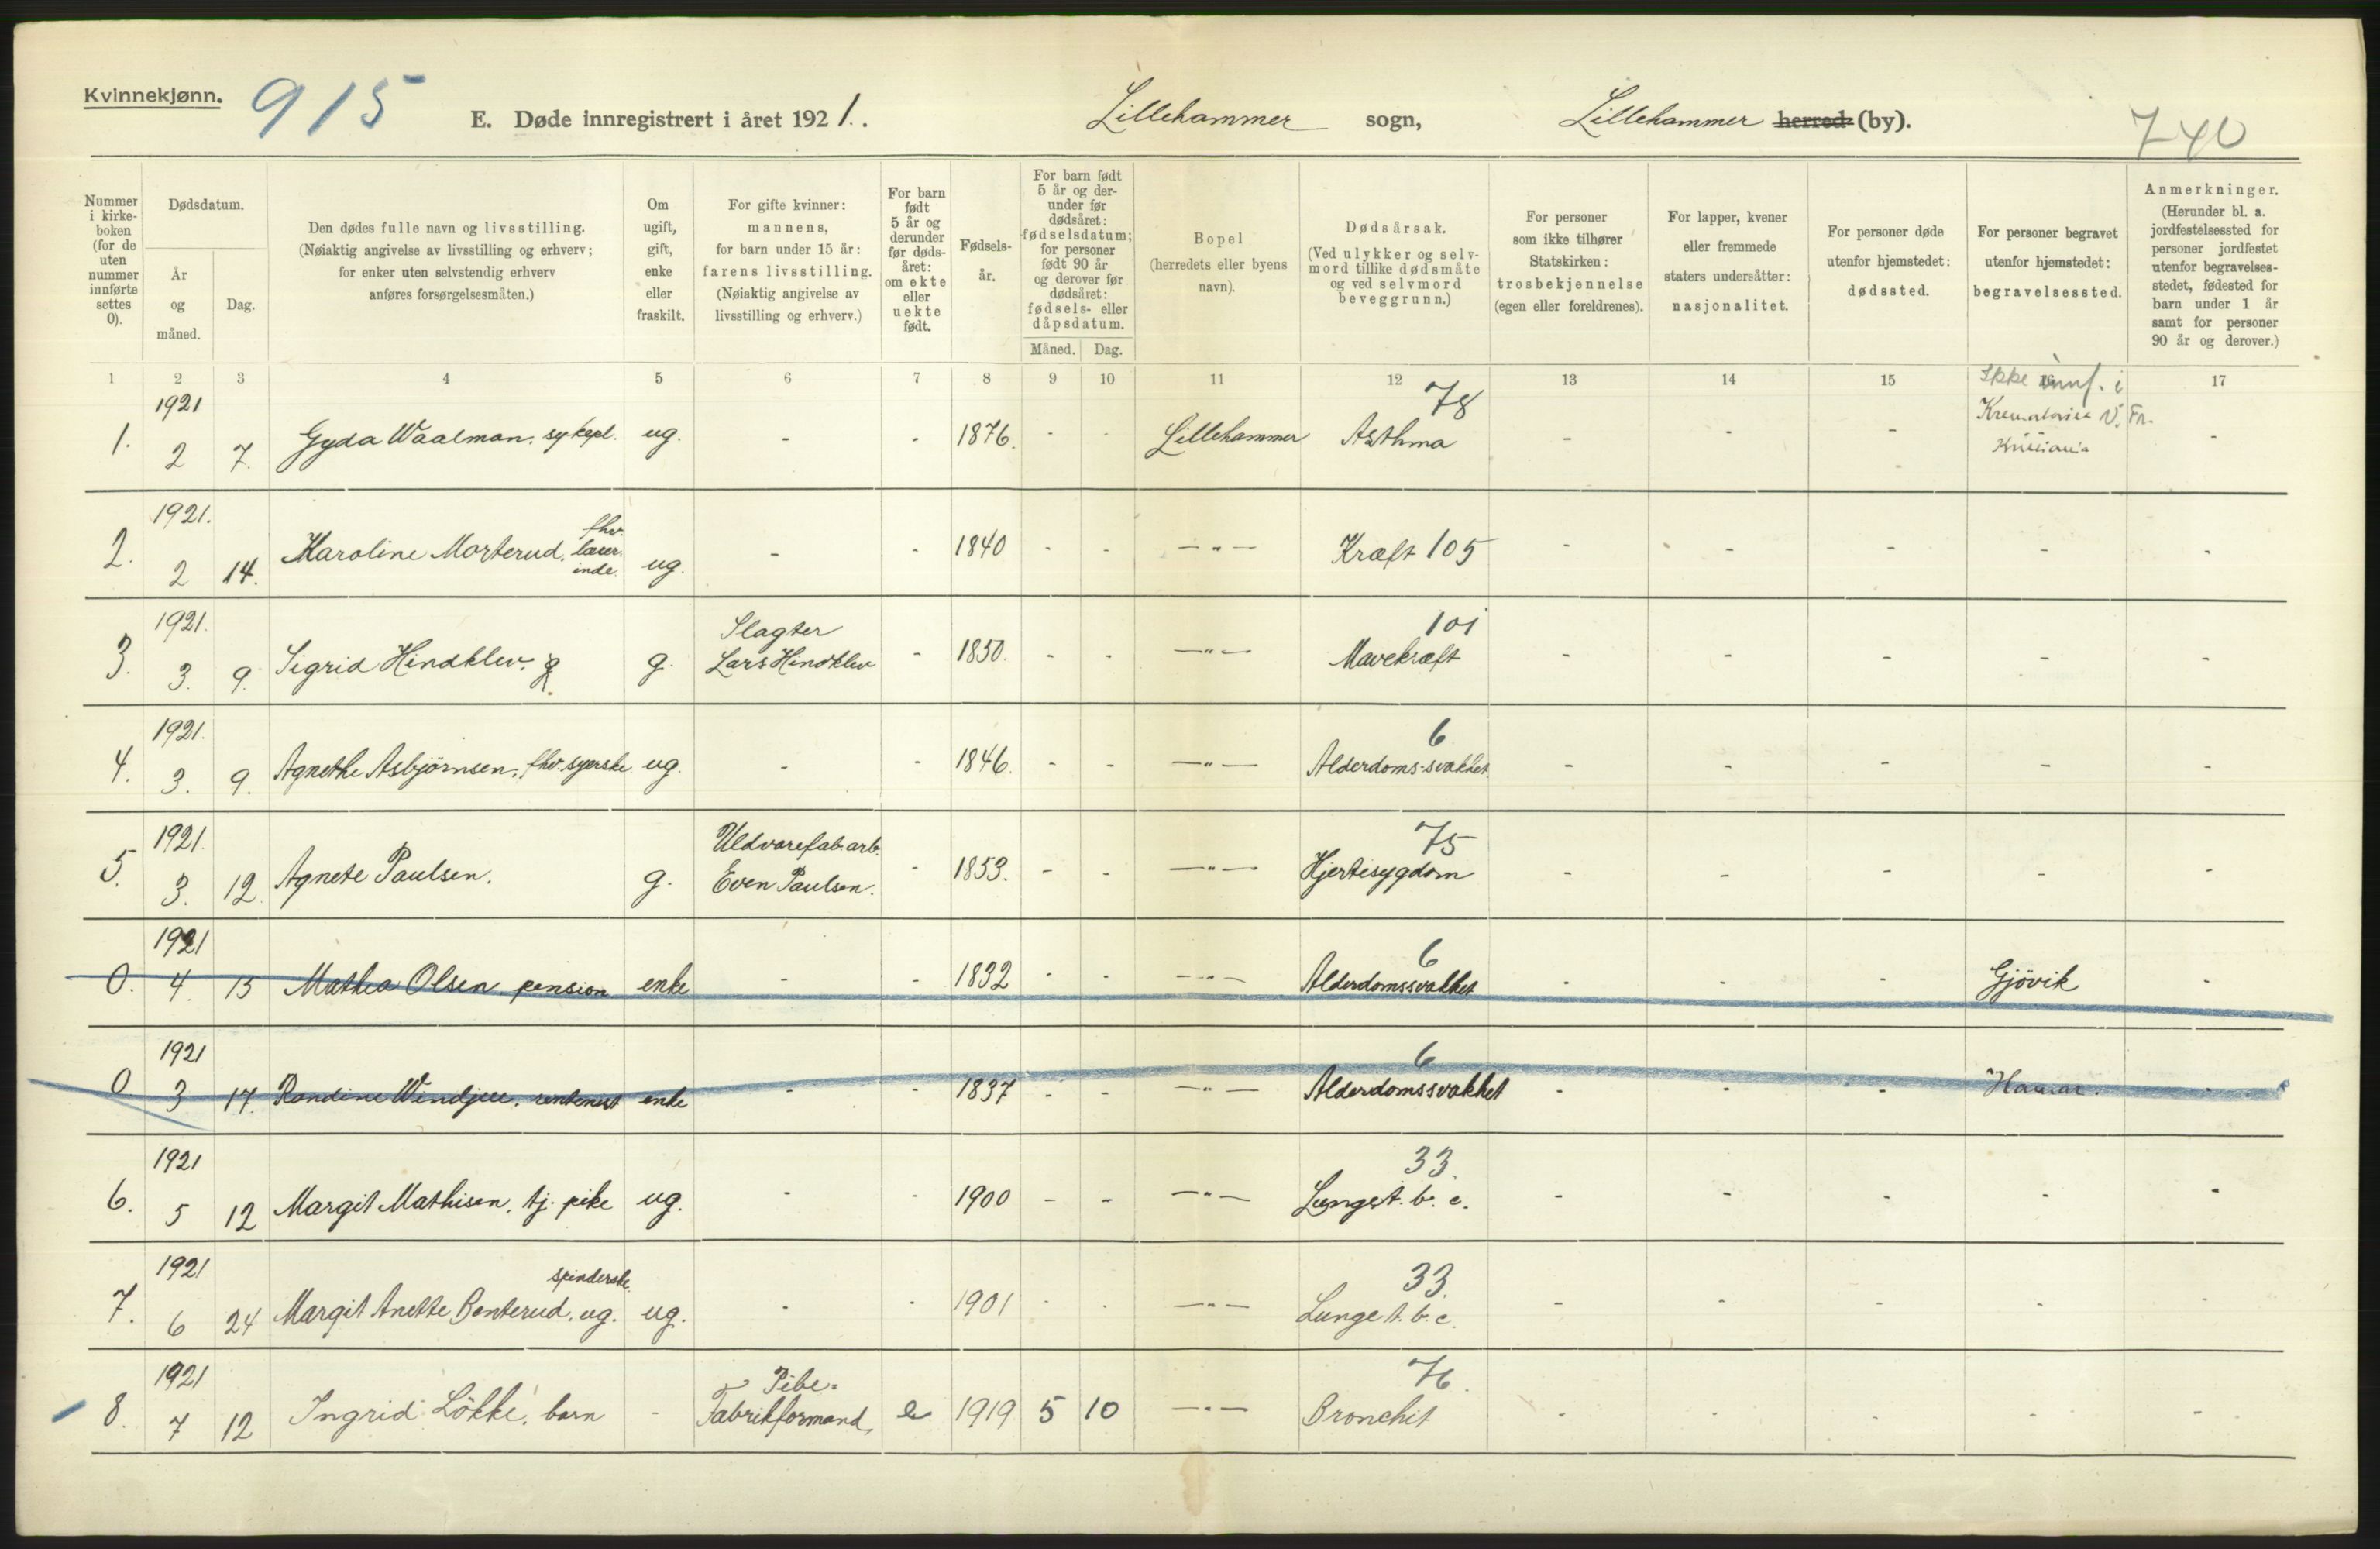 Kvinnekjønn.
915
E. Døde innregistrert i året 1921.
Lillehammer sogn,
Lillehammer herred (by).
740
Nummer i kirke-boken (for de uten nummer innførte settes 0).
Dødsdatum.
År og måned.
Dag.
Den dødes fulle navn og livsstilling.
(Nøiaktig angivelse av livsstilling og erhverv;
for enker uten selvstendig erhverv
anføres forsørgelsesmåten.)
Om ugift, gift, enke eller fraskilt.
For gifte kvinner:
mannens,
for barn under 15 år:
farens livsstilling.
(Nøiaktig angivelse av
livsstilling og erhverv.)
For barn født 5 år og derunder før døds-året: om ekte eller uekte født.
Fødsels-år.
For barn født 5 år og der-under før dødsåret: fødselsdatum; for personer født 90 år og derover før dødsåret: fødsels- eller dåpsdatum.
Måned. Dag.
Bopel
(herredets eller byens
navn).
Dødsårsak.
(Ved ulykker og selv-
mord tillike dødsmåte
og ved selvmord
beveggrunn.)
For personer
som ikke tilhører
Statskirken:
trosbekjennelse
(egen eller foreldrenes).
For lapper, kvener
eller fremmede
staters undersåtter:
nasjonalitet.
For personer døde
utenfor hjemstedet:
dødssted.
For personer begravet
utenfor hjemstedet:
begravelsessted.
Anmerkninger.
(Herunder bl. a.
jordfestelsessted for
personer jordfestet
utenfor begravelses-
stedet, fødested for
barn under 1 år
samt for personer
90 år og derover.)
1 2 3 4 5 6 7 8 9 10 11 12 13 14 15 16 17
1. 1921 2 7. Gyda Waalman, sykepl. ug. - - 1876. - - Lillehammer 78 Asthma - - - Ikke innf. i
V. Fr.
-
2. 1921. 2 14. Karoline Morterud, fhv. lærer-inde. ug. - - 1840 - - -"- Kræft 105 - - - - -
3. 1921. 3. 9. Sigrid Hindklev. g. g. Slagter Lars Hindklev - 1850. - - -"- 101 Mavekræft - - - - -
4. 1921. 3. 9. Agnethe Asbjørnsen, fhv. syerske ug. - - 1846. - - -"- 6 Alderdoms-svakhet - - - - -
5. 1921. 3. 12. Agnete Paulsen. g. Uldvarefab.arb. Even Paulsen. - 1853. - - -"- 75 Hjertesygdom - - - - -
0. 1921 4. 15 Mathea Olsen, pension enke - - 1832 - - -"- 6 Alderdomssvakhet - - - Gjövik -
0 1921 3 17. Randine enke - - 1837 - - -"- 6 Alderdomssvakhet - - - Hamar. -
6. 1921 5 12 Margit Mathisen, tj. pike ug. - - 1900 - - -"- 33. Lunge t. b. c. - - - - -
7. 1921 6 24 Margit Anette Benterud, ug. spinderske ug. - - 1901 - - -"- 33. Lunge t. b. c. - - - - -
8. 1921 7 12 Ingrid Lökke, barn - Pibe-Fabrikformand, e 1919 5 10 -"- 76. Bronchit - - - - -